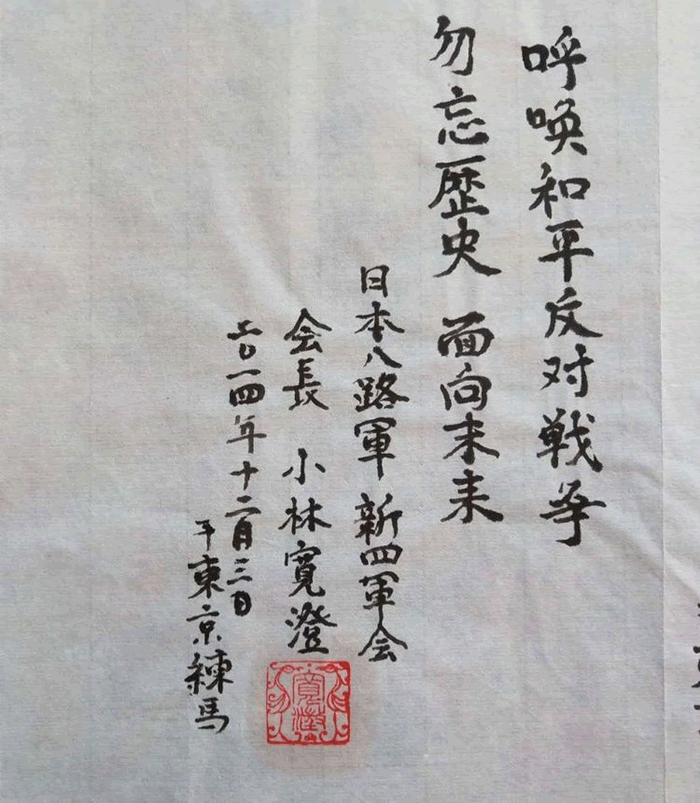 呼喚和平反对戦争
勿忘歴史 面向未来
日本八路軍 新四軍会
会長 小林寛澄
二〇一四年十二月三日
于東京練馬
寛澄